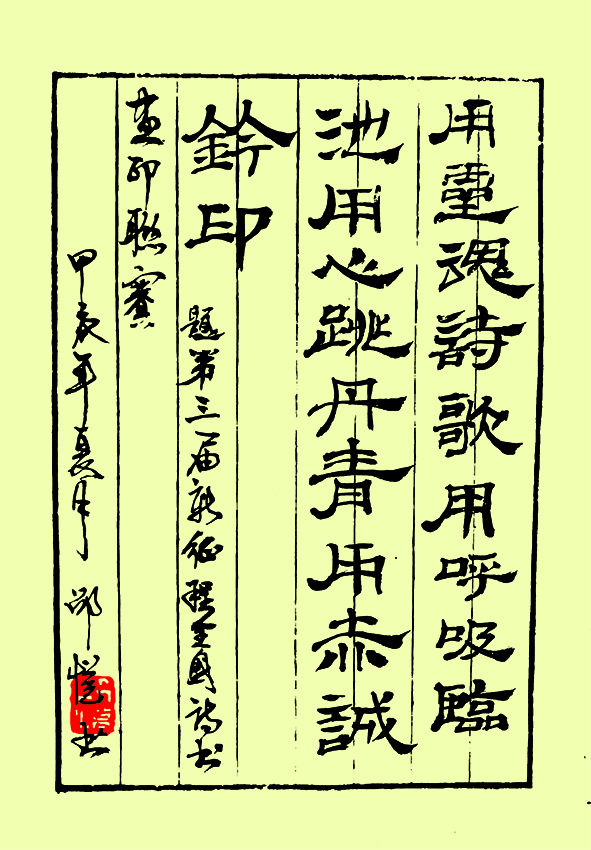 用靈魂詩歌用呼吸臨
池用心跳丹青用赤誠
鈐印
題第三届新征程全國詩书
畫印聯賽
甲辰年夏月